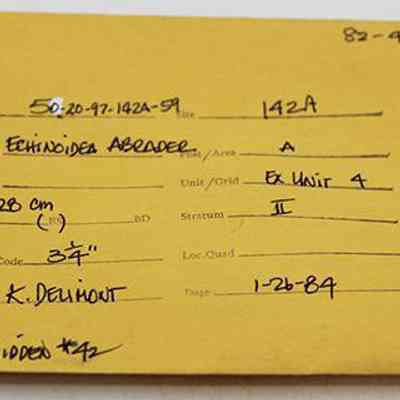 82-4
50-20-97-142A-59 Site 142A
ECHINOIDEA ABRADER Feat/Area A
Unit/Grid EX UNIT 4
28 cm ( ) BD Stratum II
Code 3 1/4" Loc.Quad
K. DELIMONT 1-26-84
IDDEN #42